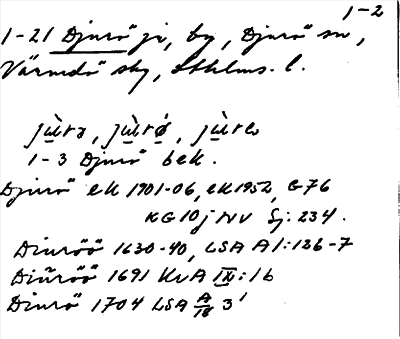 1-2
1-21 Djurö ji, by, Djurö sn,
Värmdö sky, Sthlms. l.
jùrə, jùrǿ, jùrə
1-3 Djurö bek.
Djurö EK 1901-06, EK 1952, G76
KG 10j NV Sj: 234.
Diuröö 1630-40, LSA A1:126-7
Diŭröö 1691 KrA IX:1b
Diurö 1704 LSA A/18 3'